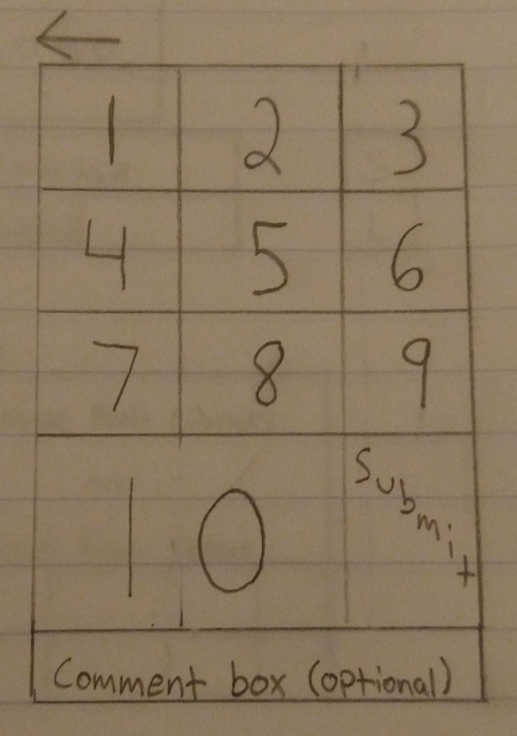 ←
1 2 3
4 5 6
7 8 9
10 Submit
Comment box (optional)